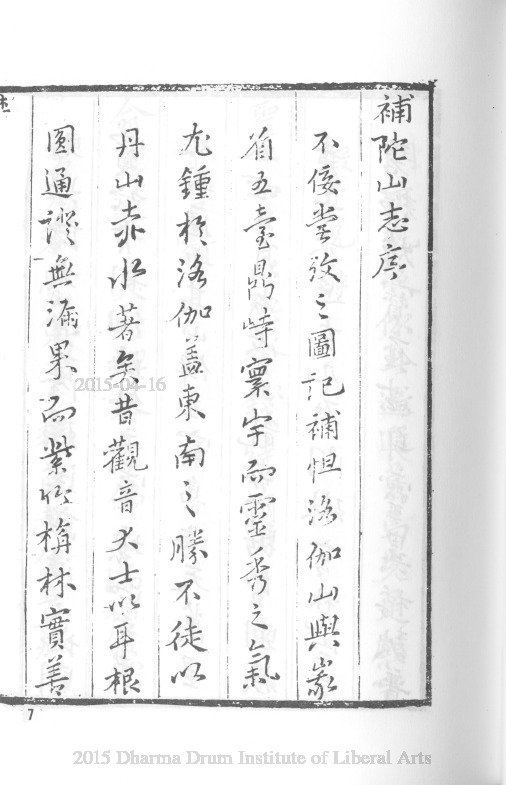 補陀山志序
不佞嘗攷之圖記補怛洛伽山與峩
眉五臺鼎峙寰宇而靈秀之氣
尤鍾於洛伽蓋東南之勝不徒以
丹山赤水著矣昔觀音大士以耳根
圓通證無漏果而紫竹栴林實善
7
2015-04-16
2015 Dharma Drum Institute of Liberal Arts